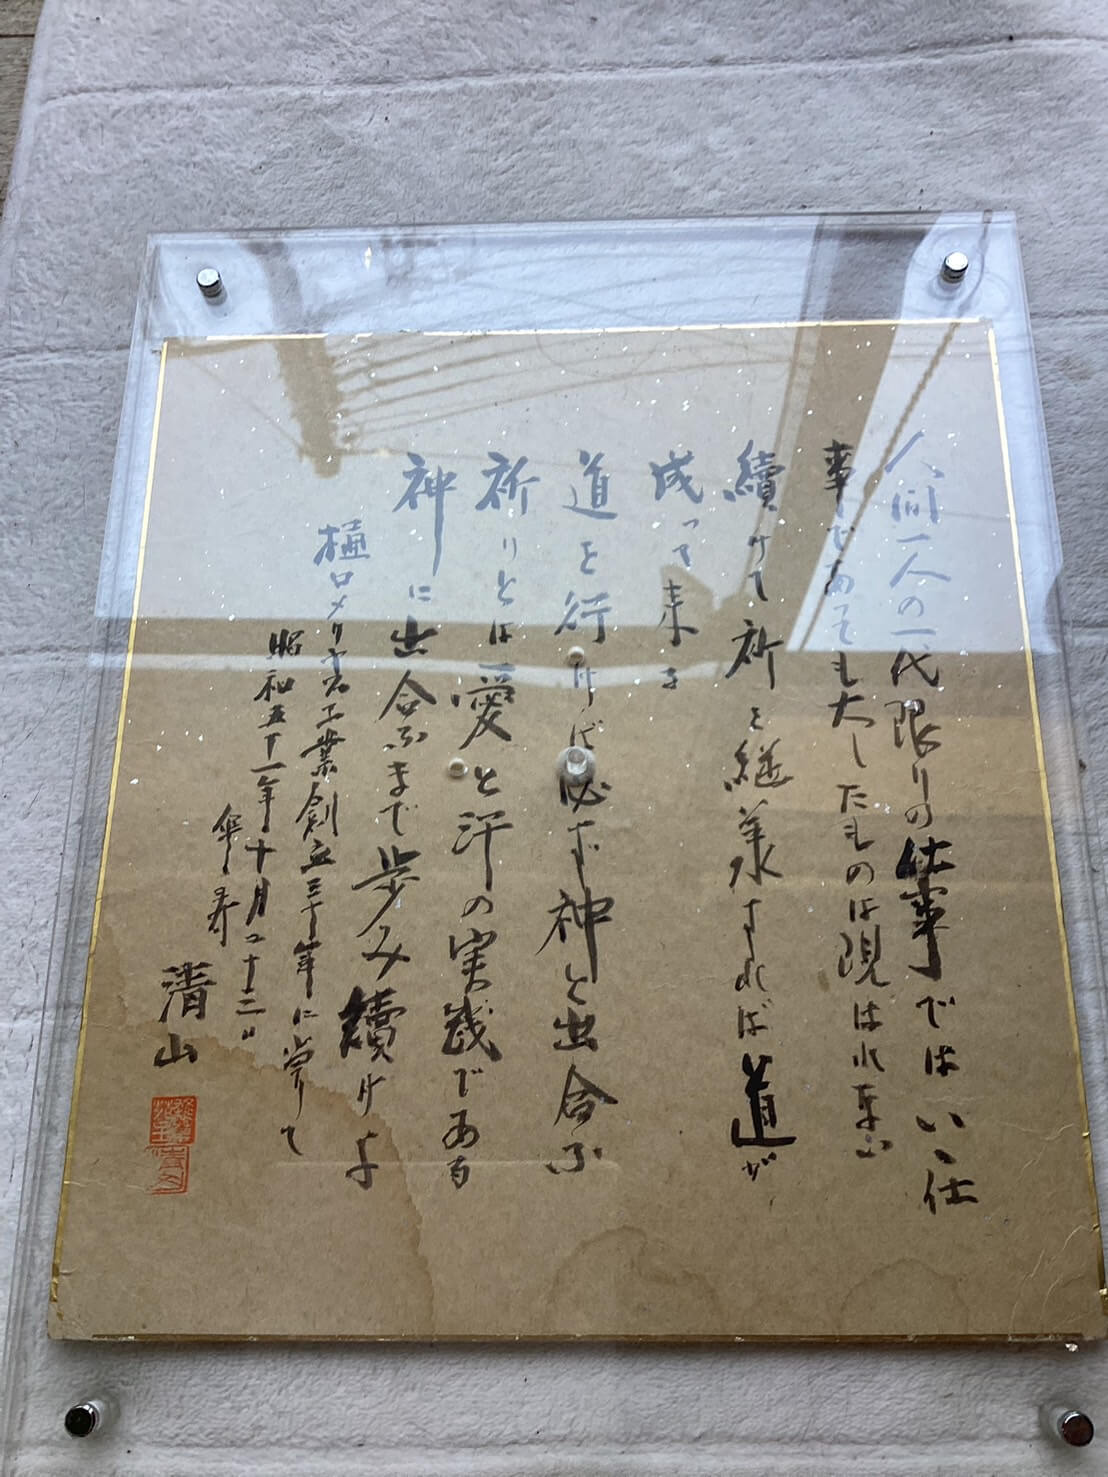 人間一人の一代限りの仕事ではいゝ仕
事であつても大したものは現はれない
續けて祈を継承すれば道が
成って来る
道を行けば必ず神と出合ふ
祈りとは愛と汗の実践である
神に出合ふまで歩み續けよ
樋口メリヤス工業創立三十年に当りて
昭和五十一年十月二十三日
傘寿
清山